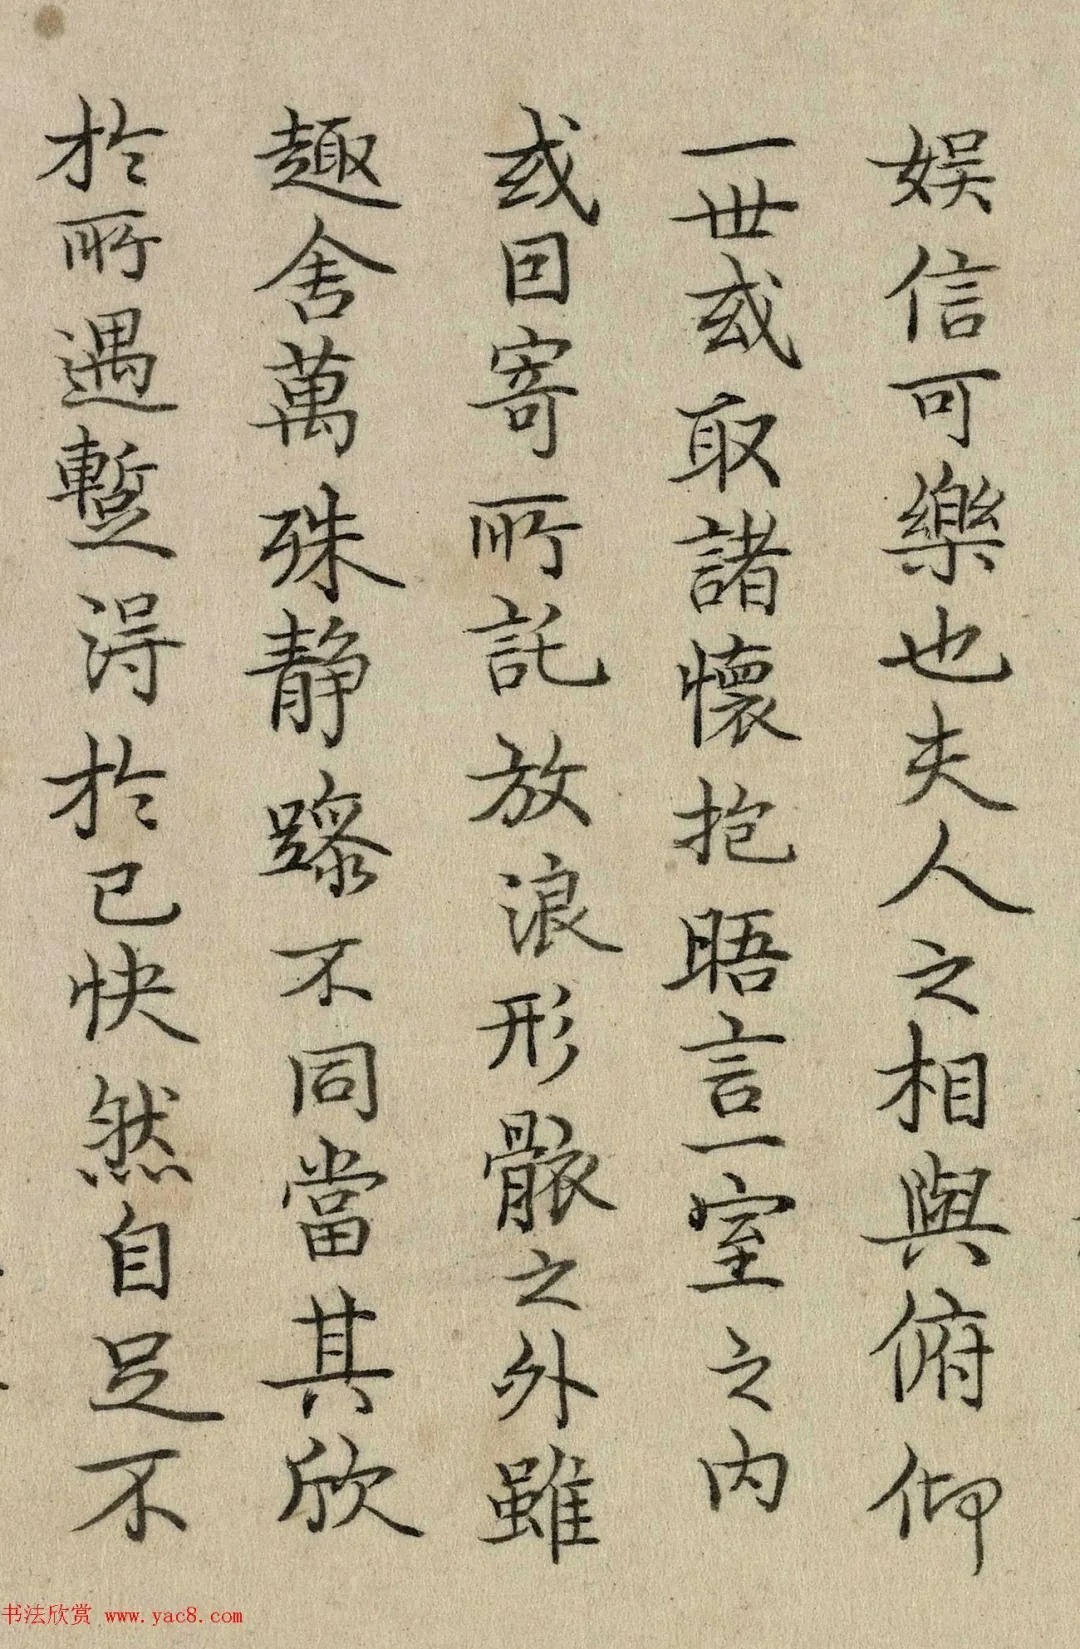 娱信可樂也夫人之相與俯仰
一世或取諸懷抱晤言一室之内
或因寄所託放浪形骸之外雖
趣舍萬殊静躁不同當其欣
於所遇暫得於己快然自足不
书法欣赏 www.yac8.com